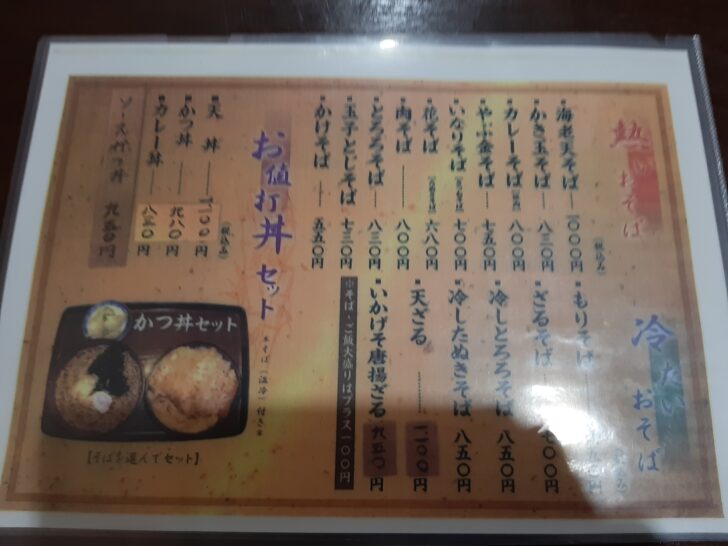 熱いおそば
(税込み)
▪海老天そば 一〇〇〇円
▪かき玉そば 八三〇円
▪カレーそば 八〇〇円
▪やぶ金そば 七五〇円
▪いなりそば 七〇〇円
▪花そば 六八〇円
▪肉そば 八〇〇円
▪とろろそば 八三〇円
▪玉子とじそば 七三〇円
▪かけそば 五五〇円
冷たいおそば
▪もりそば
▪ざるそば 七〇〇円
▪冷しとろろそば 八五〇円
▪冷したぬきそば 八五〇円
▪天ざる 一、一〇〇円
▪いかげそ唐揚ざる 九五〇円
※そば・ご飯大盛りはプラス一〇〇円
お値打丼セット
※そば(温冷)付き※
(税込み)
▪天丼 一、一〇〇円
▪かつ丼 九八〇円
▪カレー丼 八三〇円
ソースかつ丼 九五〇円
かつ丼セット
【そばを選んでセット】